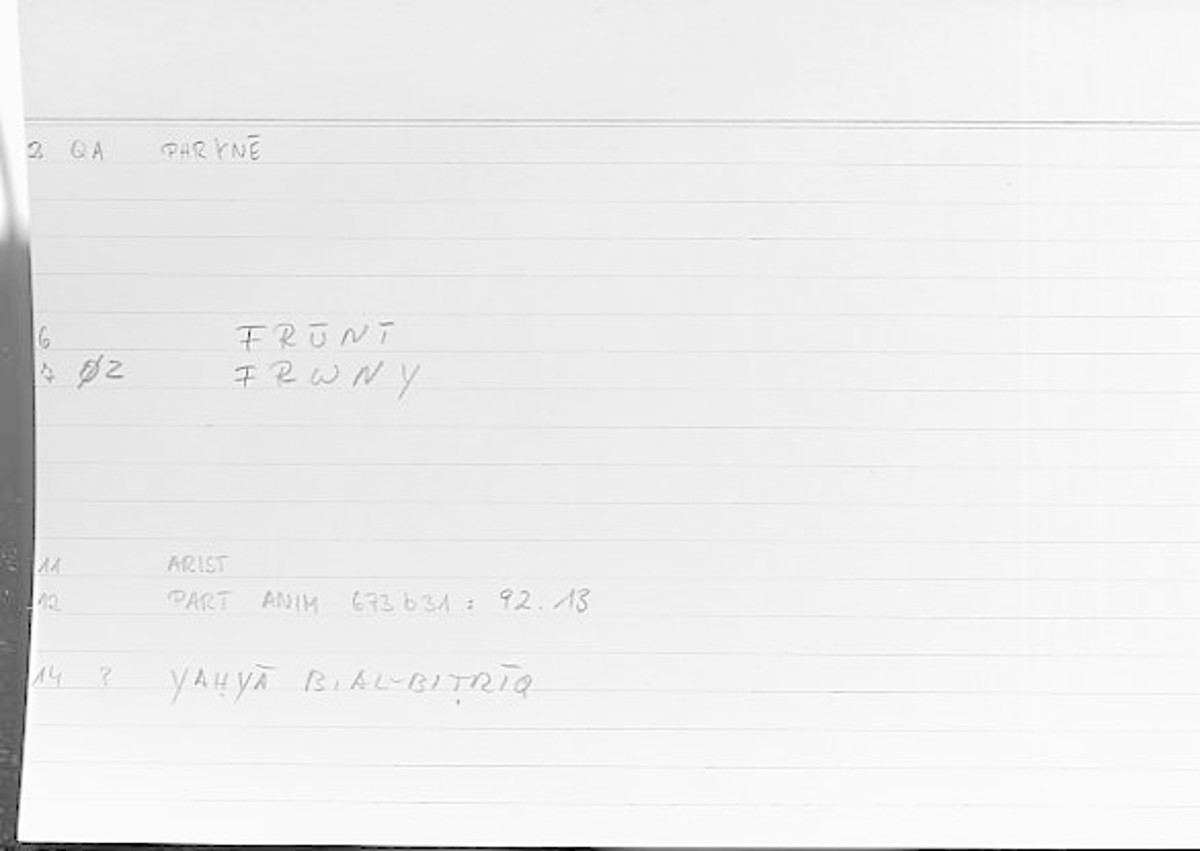 2 QA PHRYNĒ
6 FRŪNĪ
7 Ø2 FRWNY
11 ARIST
12 PART ANIM 673b31 : 92.13
14 ? YAḤYĀ B. AL-BIṬRĪQ